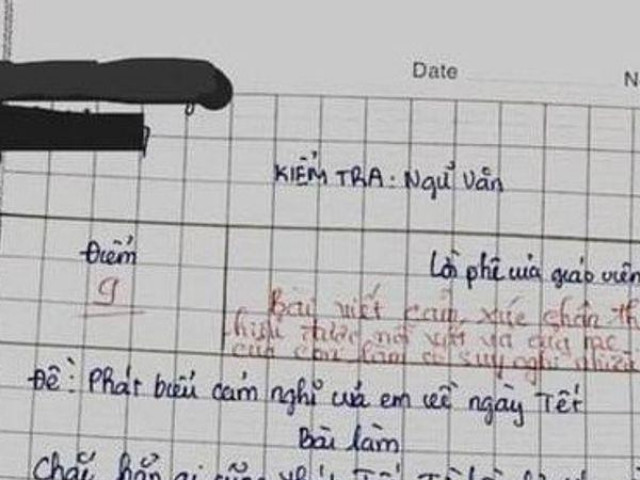 Date N
KIỂM TRA: Ngữ Văn
Điểm
Lời phê của giáo viên
9
Bài viết cảm xúc chân th
hiểu được nỗi vất vả của mẹ
của con làm cô suy nghĩ nhiều
Đề: Phát biểu cảm nghĩ của em về ngày Tết
Bài làm
Chắc hẳn ai cũng